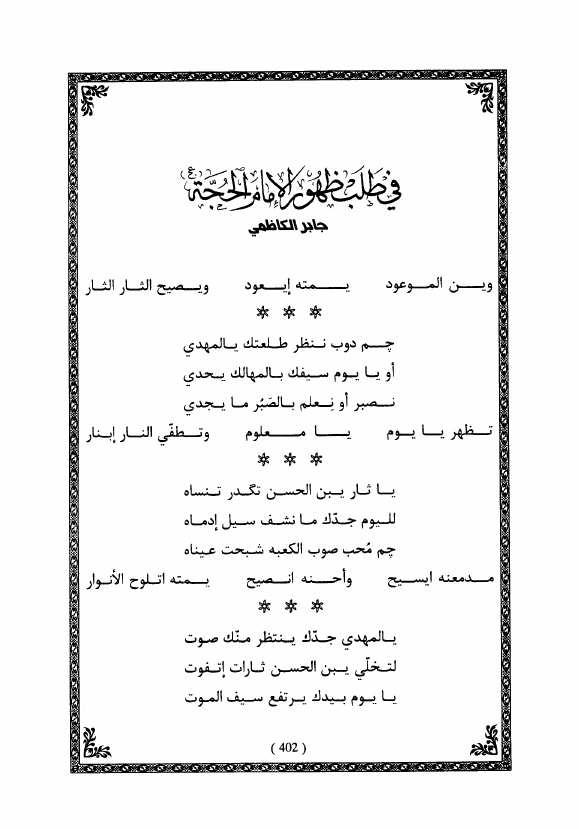 في طلب ظهور الإمام الحجة (ع)
جابر الكاظمي
وين الموعود يمته إيعود ويصيح الثار الثار
* * *
چم دوب ننظر طلعتك يالمهدي
أو يا يوم سيفك بالمهالك يحدي
نصبر أو نِعلم بالصَبُر ما يجدي
تظهر يا يوم يا معلوم وتطفّي النار إبنار
* * *
يا ثار يبن الحسن تگدر تنساه
لليوم جدّك ما نشف سيل إدماه
چم مُحب صوب الكعبه شبحت عيناه
مدمعنه ايسيح وأحنه انصيح يمته اتلوح الأنوار
* * *
يالمهدي جدّك ينتظر منّك صوت
لتخلّي يبن الحسن ثارات إتفوت
يا يوم بيدك يرتفع سيف الموت
( 402 )